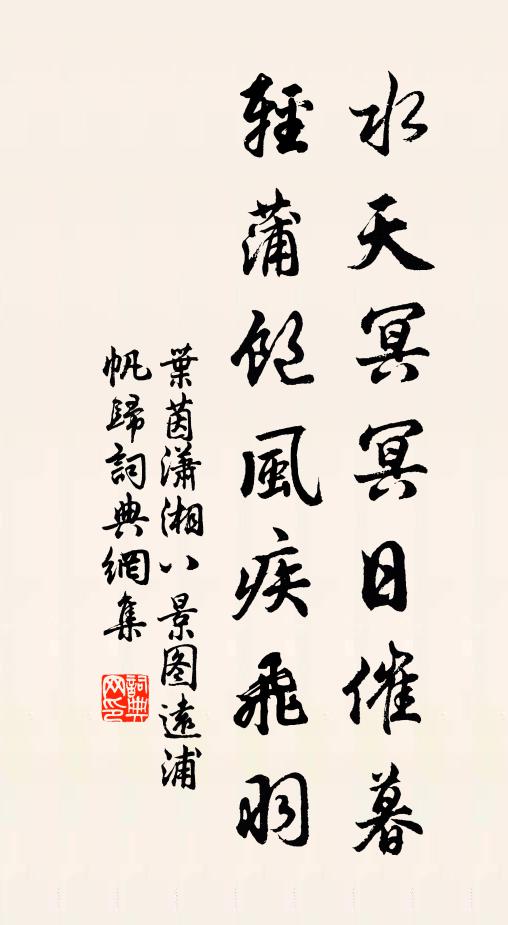 水天冥冥日催暮
輕蒲飽風疾飛羽
葉茵瀟湘八景图遠浦
帆歸詞典網集
詞典
网印